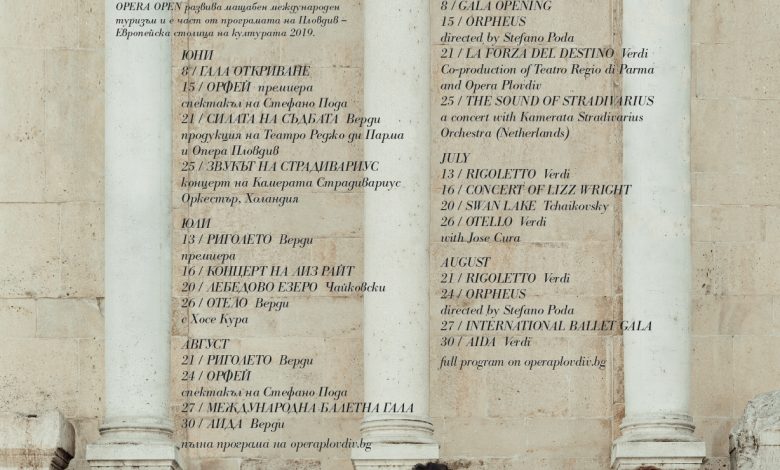 OPERA OPEN развива мащабен международен
туризъм и е част от програмата на Пловдив –
Европейска столица на културата 2019.
ЮНИ
8 / ГАЛА ОТКРИВАНЕ
15 / ОРФЕЙ премиера
спектакъл на Стефано Пода
21 / СИЛАТА НА СЪДБАТА Верди
продукция на Театро Реджо ди Парма
и Опера Пловдив
25 / ЗВУКЪТ НА СТРАДИВАРИУС
концерт на Камерата Страдивариус
Оркестър, Холандия
ЮЛИ
13 / РИГОЛЕТО Верди
премиера
16 / КОНЦЕРТ НА ЛИЗ РАЙТ
20 / ЛЕБЕДОВО ЕЗЕРО Чайковски
26 / ОТЕЛО Верди
с Хосе Кура
АВГУСТ
21 / РИГОЛЕТО Верди
24 / ОРФЕЙ
спектакъл на Стефано Пода
27 / МЕЖДУНАРОДНА БАЛЕТНА ГАЛА
30 / АИДА Верди
пълна програма на operaplovdiv.bg
8 / GALA OPENING
15 / ORPHEUS
directed by Stefano Poda
21 / LA FORZA DEL DESTINO Verdi
Co-production of Teatro Regio di Parma
and Opera Plovdiv
25 / THE SOUND OF STRADIVARIUS
a concert with Kamerata Stradivarius
Orchestra (Netherlands)
JULY
13 / RIGOLETTO Verdi
16 / CONCERT OF LIZZ WRIGHT
20 / SWAN LAKE Tchaikovsky
26 / OTELLO Verdi
with Jose Cura
AUGUST
21 / RIGOLETTO Verdi
24 / ORPHEUS
directed by Stefano Poda
27 / INTERNATIONAL BALLET GALA
30 / AIDA Verdi
full program on operaplovdiv.bg